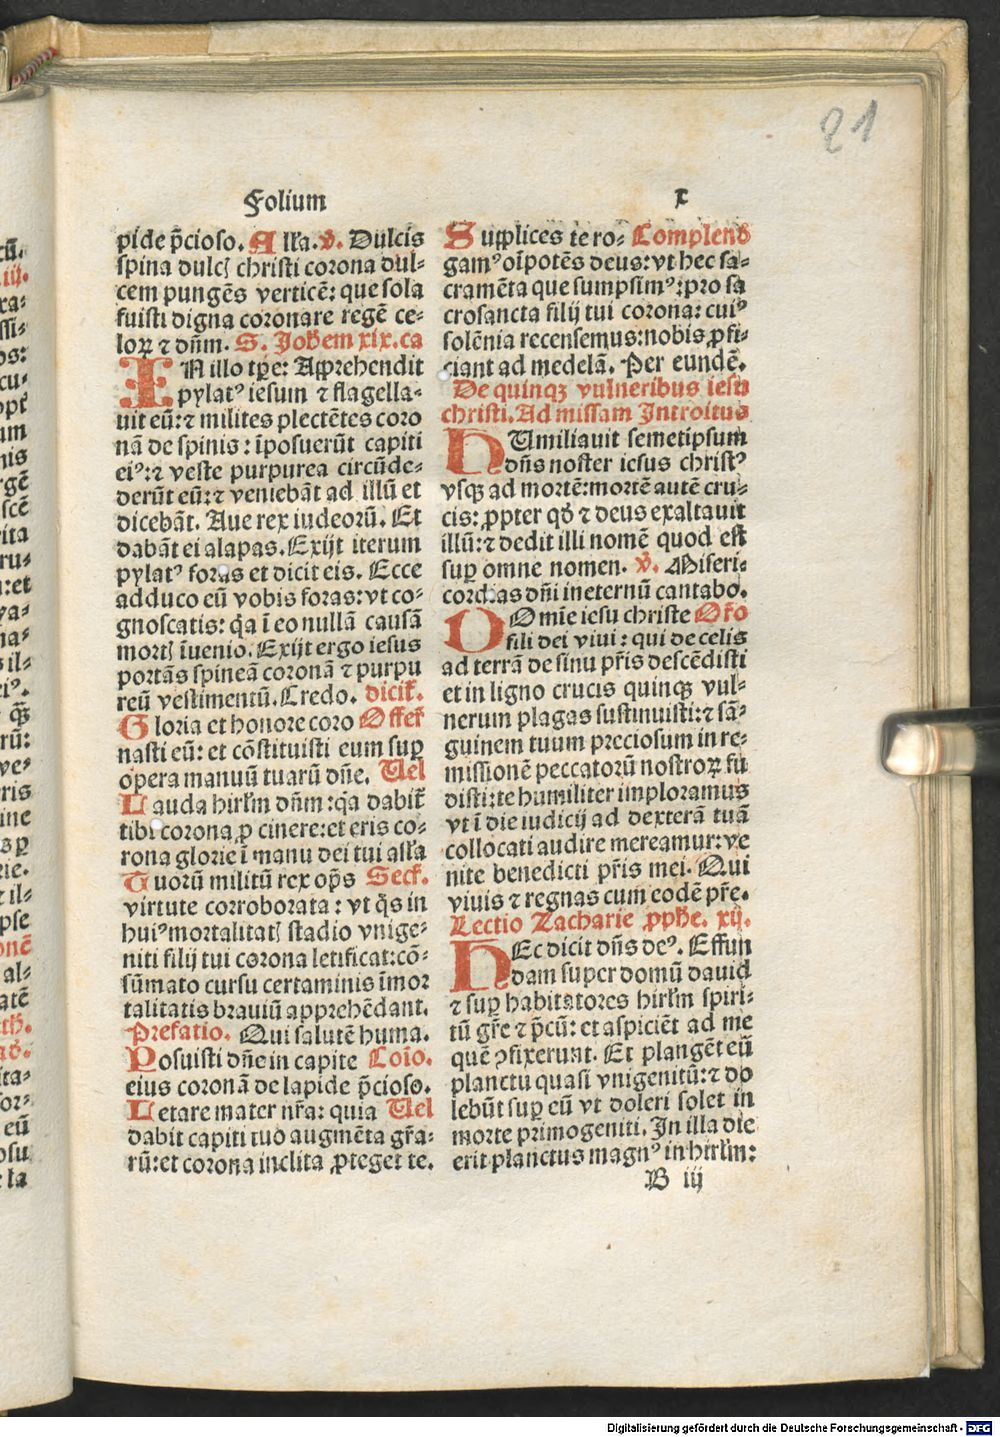 21
Folium
x
pide p̄cioso. All'a. v̄. Dulcis
spina dulcꝭ christi corona dul⸗
cem pungēs verticē: que sola
fuisti digna coronare regē ce⸗
loꝝ ⁊ dn̄m. S. Joh̄em xix. ca
IN illo tp̄e: Apprehendit
pylatꝰ iesum ⁊ flagella⸗
uit eū: ⁊ milites plectētes coro
nā de spinis: īposuerūt capiti
eiꝰ: ⁊ veste purpurea circūde⸗
derūt eū: ⁊ veniebāt ad illū et
dicebāt. Aue rex iudeorū. Et
dabāt ei alapas. Exijt iterum
pylatꝰ foras et dicit eis. Ecce
adduco eū vobis foras: vt co⸗
gnoscatis: q̄a ī eo nullā causā
mortꝭ īuenio. Exijt ergo iesus
portās spineā coronā ⁊ purpu
reū vestimentū. Credo. dicit̄.
Gloria et honore coro Offer̄
nasti eū: et cōstituisti eum suꝑ
opera manuū tuarū dn̄e. Uel
Lauda hirl'm dn̄m: q̄a dabit̄
tibi corona ꝓ cinere: et eris co⸗
rona glorie ī manu dei tui all'a
Tuorū militū rex op̄s Secr̄.
virtute corroborata: vt q̄s in
huiꝰ mortalitatꝭ stadio vnige⸗
niti filij tui corona letificat: cō⸗
sūmato cursu certaminis īmor
talitatis brauiū apprehēdant.
Prefatio. Qui salutē huma.
Posuisti dn̄e in capite Cōio.
eius coronā de lapide p̄cioso.
Letare mater nr̄a: quia Uel
dabit capiti tuo augmēta gr̄a⸗
rū: et corona inclita ꝓteget te.
Supplices te ro⸗ Complend
gamꝰ oīpotēs deus: vt hec sa⸗
cramēta que sumpsimꝰ: pro sa
crosancta filij tui corona: cuiꝰ
solēnia recensemus: nobis ꝓfi⸗
ciant ad medelā. Per eundē.
De quinqꝫ vulneribus iesu
christi. Ad missam Introitus
HUmiliauit semetipsum
dn̄s noster iesus christꝰ
vsqꝫ ad mortē: mortē autē cru⸗
cis: ꝓpter qd̄ ⁊ deus exaltauit
illū: ⁊ dedit illi nomē quod est
suꝑ omne nomen. v̄. Miseri⸗
cordias dn̄i in eternū cantabo.
DOmīe iesu christe Or̄o
fili dei viui: qui de celis
ad terrā de sinu pr̄is descēdisti
et in ligno crucis quinqꝫ vul⸗
nerum plagas sustinuisti: ⁊ sā⸗
guinem tuum preciosum in re⸗
missionē peccatorū nostroꝝ fu
disti: te humiliter imploramus
vt ī die iudicij ad dexterā tuā
collocati audire mereamur: ve
nite benedicti pr̄is mei. Qui
viuis ⁊ regnas cum eodē pr̄e.
Lectio Zacharie ꝓph̄e. xij.
HEc dicit dn̄s deꝰ. Effun
dam super domū dauid
⁊ suꝑ habitatores hirl'm spiri⸗
tū gr̄e ⁊ p̄cū: et aspiciēt ad me
quē ꝯfixerunt. Et plangēt eū
planctu quasi vnigenitū: ⁊ do
lebūt suꝑ eū vt doleri solet in
morte primogeniti. In illa die
erit planctus magnꝰ in hirl'm:
B iij
Digitalisierung gefördert durch die Deutsche Forschungsgemeinschaft - DFG